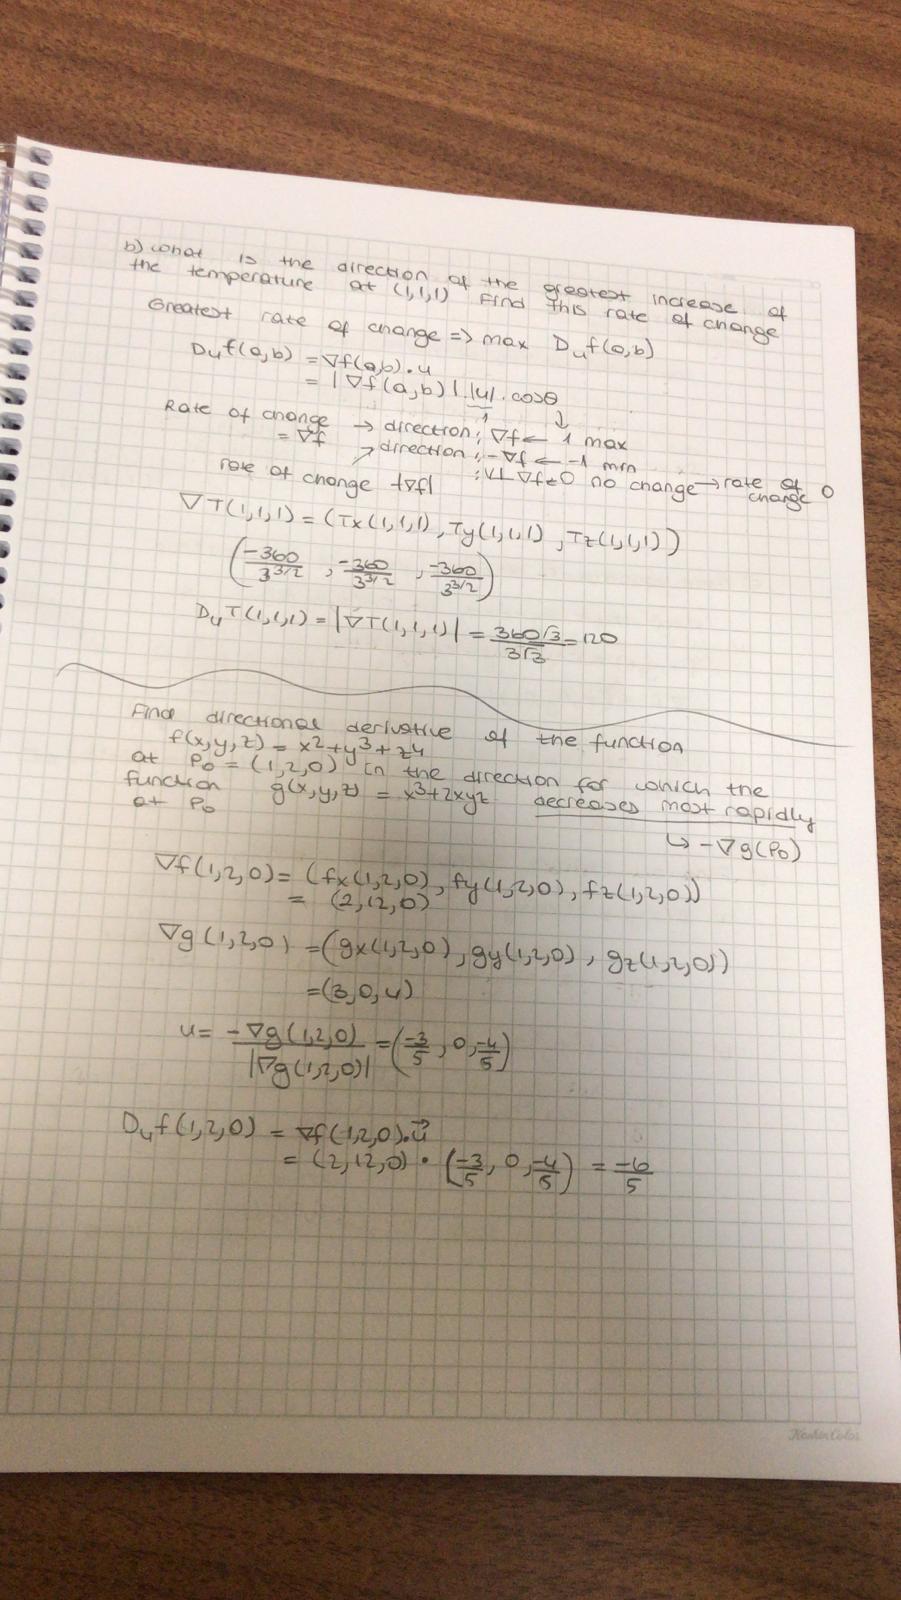 b) What is the direction of the greatest increase of
the temperature at (1,1,1) Find this rate of change
Greatest rate of change => max Duf(a,b)
Duf(a,b) = ∇f(a,b).u
= |∇f(a,b)|.|u|.cosθ
1 ↓
Rate of change → direction: ∇f ← 1 max
= ∇f ↗ direction: -∇f ← -1 min
rate of change -|∇f| : v⊥∇f ← 0 no change → rate of change 0
∇T(1,1,1) = (Tx(1,1,1), Ty(1,1,1), Tz(1,1,1))
(-360/3^3/2, -360/3^3/2, -360/3^3/2)
DuT(1,1,1) = |∇T(1,1,1)| = 360√3/3√3 = 120
Find directional derivative of the function
f(x,y,z) = x²+y³+z⁴
at P₀ = (1,2,0) in the direction for which the
function g(x,y,z) = x³+2xyz decreases most rapidly
at P₀
↳ -∇g(P₀)
∇f(1,2,0) = (fx(1,2,0), fy(1,2,0), fz(1,2,0))
= (2,12,0)
∇g(1,2,0) = (gx(1,2,0), gy(1,2,0), gz(1,2,0))
=(3,0,4)
u = -∇g(1,2,0)/|∇g(1,2,0)| = (-3/5, 0, -4/5)
Duf(1,2,0) = ∇f(1,2,0).u⃗
= (2,12,0) • (-3/5, 0, -4/5) = -6/5